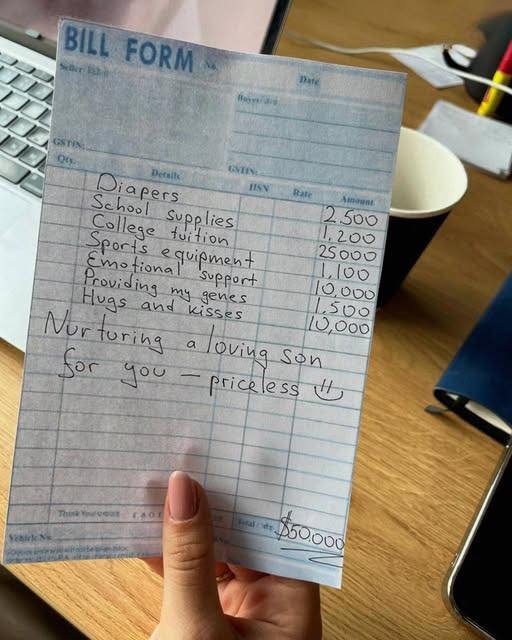 BILL FORM No.
Date
Seller
Buyer
GSTIN:
GSTIN:
Qty. Details HSN Rate Amount
Diapers 2,500
School supplies 1,200
College tuition 25000
Sports equipment 1,100
Emotional support 10,000
Providing my genes 1,500
Hugs and kisses 10,000
Nurturing a loving son
for you – priceless
Thank You E & O E Total $50,000
Vehicle No.